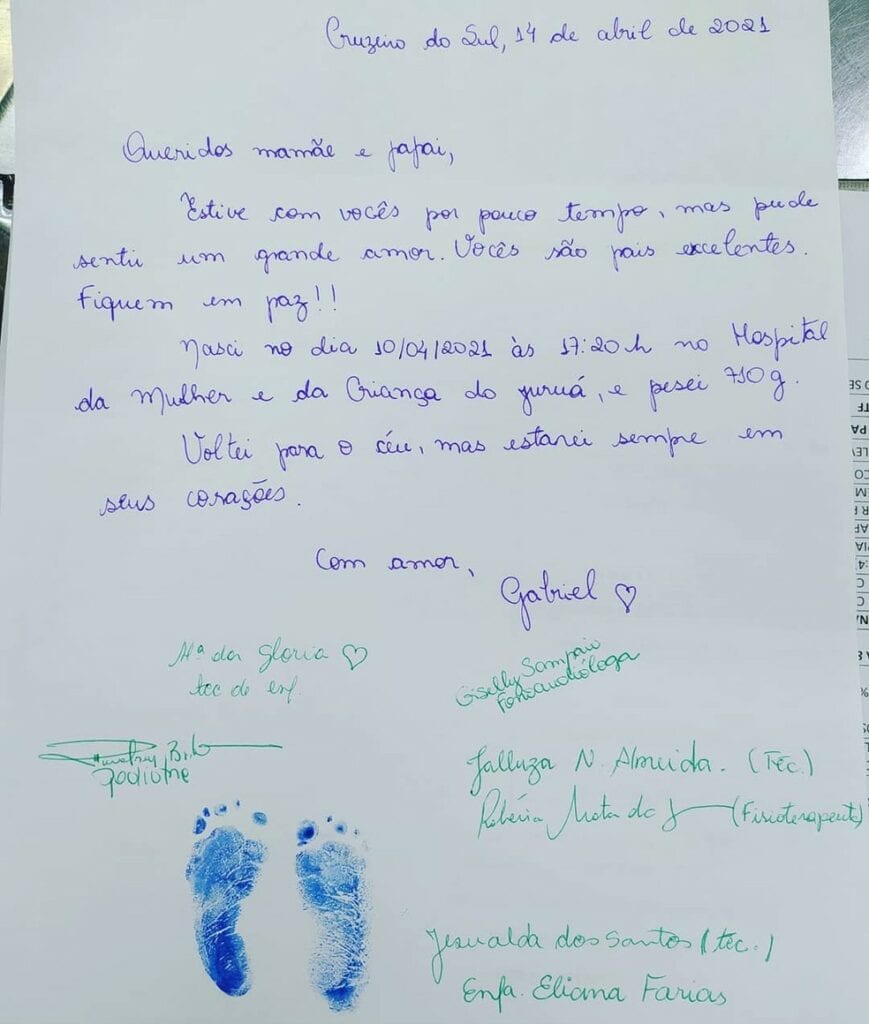 Cruzeiro do Sul, 14 de abril de 2021
Queridos mamãe e papai,
Estive com vocês por pouco tempo, mas pude
sentir um grande amor. Vocês são pais excelentes.
Fiquem em paz!!
Nasci no dia 10/04/2021 às 17:20h no Hospital
da Mulher e da Criança do Juruá, e pesei 710g.
Voltei para o céu, mas estarei sempre em
seus corações.
Com amor,
Gabriel
Mª da Gloria
tec de enf.
Giselly Sampaio
Fonoaudióloga
Jalluza N. Almeida. (Téc.)
Robéria Mota da (Fisioterapeuta)
Jesualda dos Santos (téc.)
Enfa. Eliana Farias